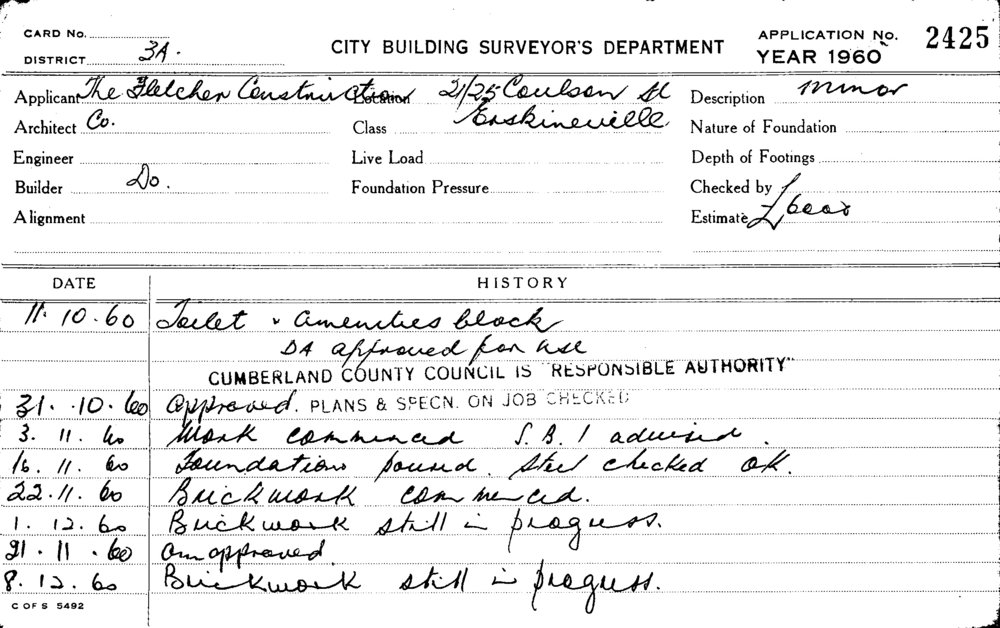 CARD No.
DISTRICT 3A.
CITY BUILDING SURVEYOR'S DEPARTMENT
APPLICATION No. 2425
YEAR 1960
Applicant The Fletcher Construction Location 21/25 Coulson St Description Minor
Architect Co. Class Erskineville Nature of Foundation
Engineer Live Load Depth of Footings
Builder Do. Foundation Pressure Checked by
Alignment Estimate £6000
DATE HISTORY
11.10.60 Toilet & amenities block
DA approved for use
CUMBERLAND COUNTY COUNCIL IS "RESPONSIBLE AUTHORITY"
31.10.60 Approved. PLANS & SPECN. ON JOB CHECKED
3.11.60 Work commenced S.B.I advised.
16.11.60 Foundation poured. Steel checked OK.
22.11.60 Brickwork commenced.
1.12.60 Brickwork still in progress.
21.11.60 approved
8.12.60 Brickwork still in progress.
C OF S 5492